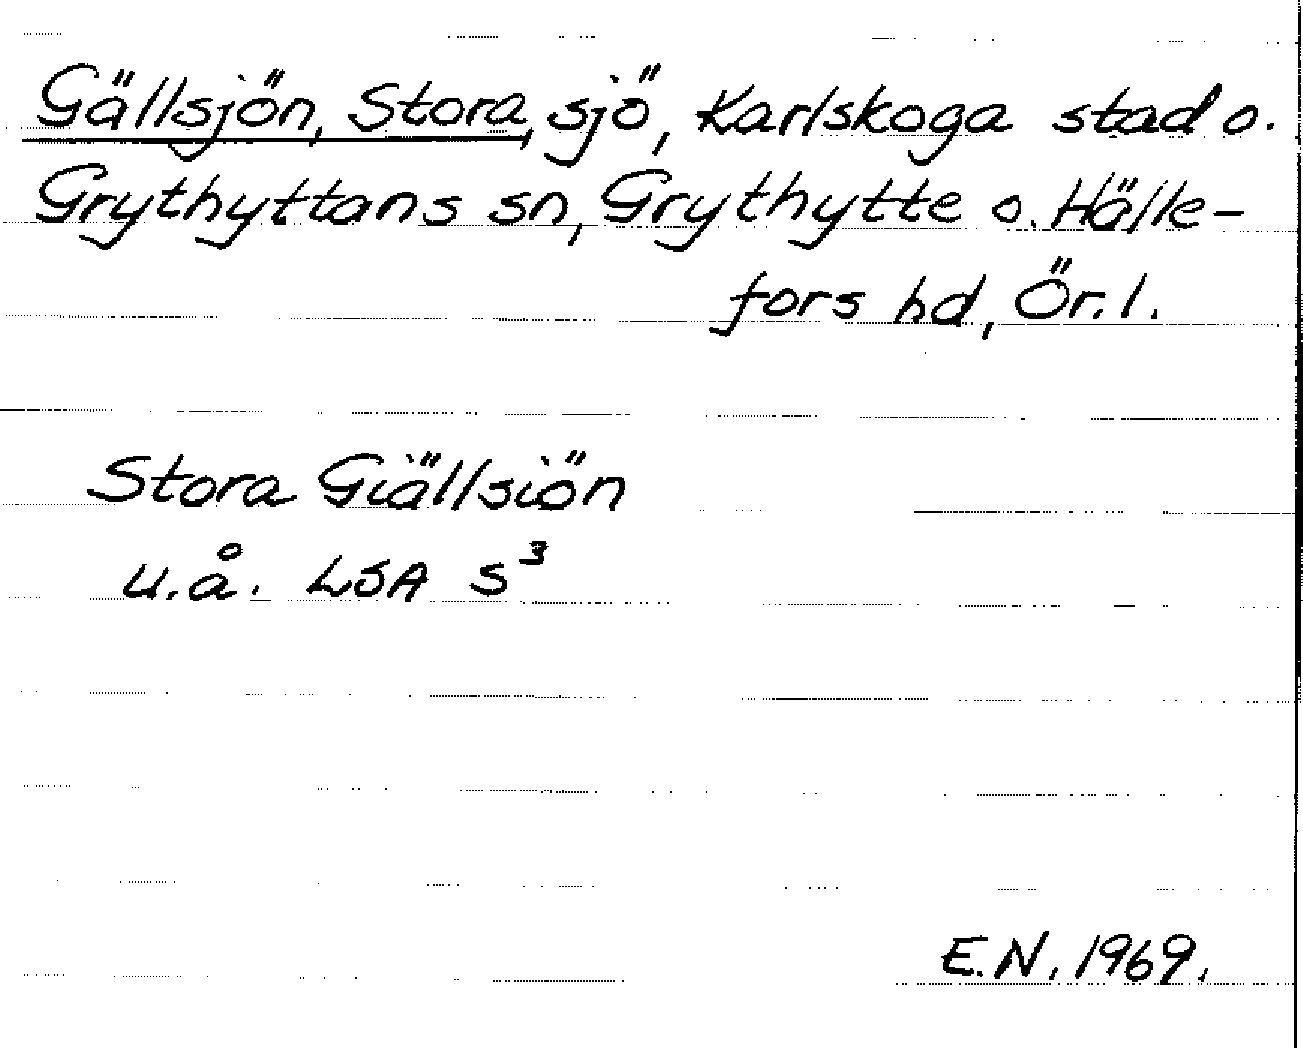 Gällsjön, Stora, sjö, Karlskoga stad o.
Grythyttans sn, Grythytte o. Hälle-
fors hd, Ör. l.
Stora Giällsiön
u.å. LSA S³
E.N. 1969.